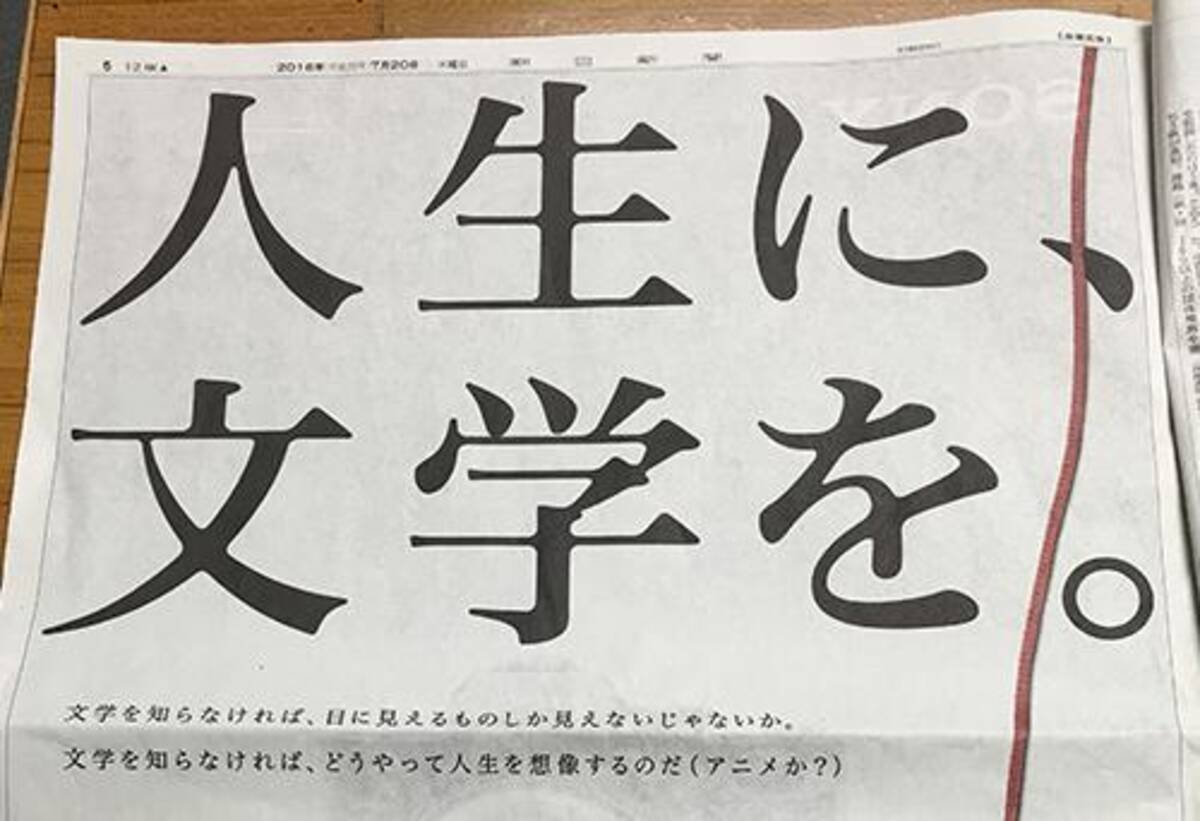 5 12版▲ 2016年(平成28年)7月20日 水曜日 朝日新聞
人生に、
文学を。
文学を知らなければ、目に見えるものしか見えないじゃないか。
文学を知らなければ、どうやって人生を想像するのだ(アニメか?)